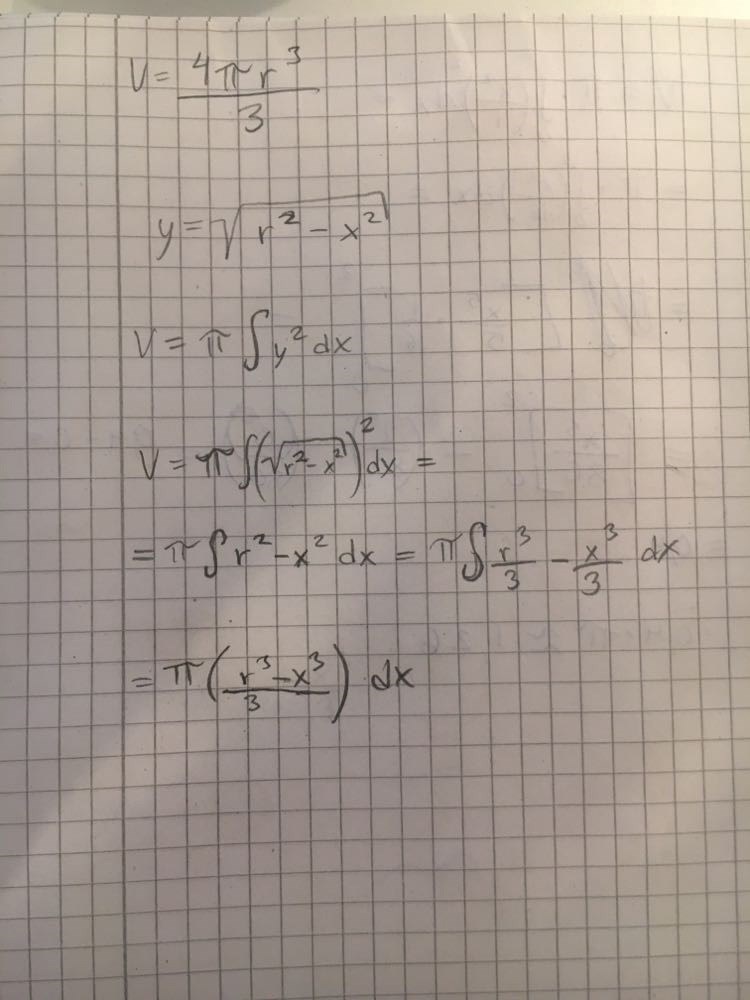 V = 4πr³/3
y = √(r² − x²)
V = π ∫ y² dx
V = π ∫(√(r² − x²))² dx =
= π ∫ r² − x² dx = π ∫ r³/3 − x³/3 dx
= π ((r³ − x³)/3) dx